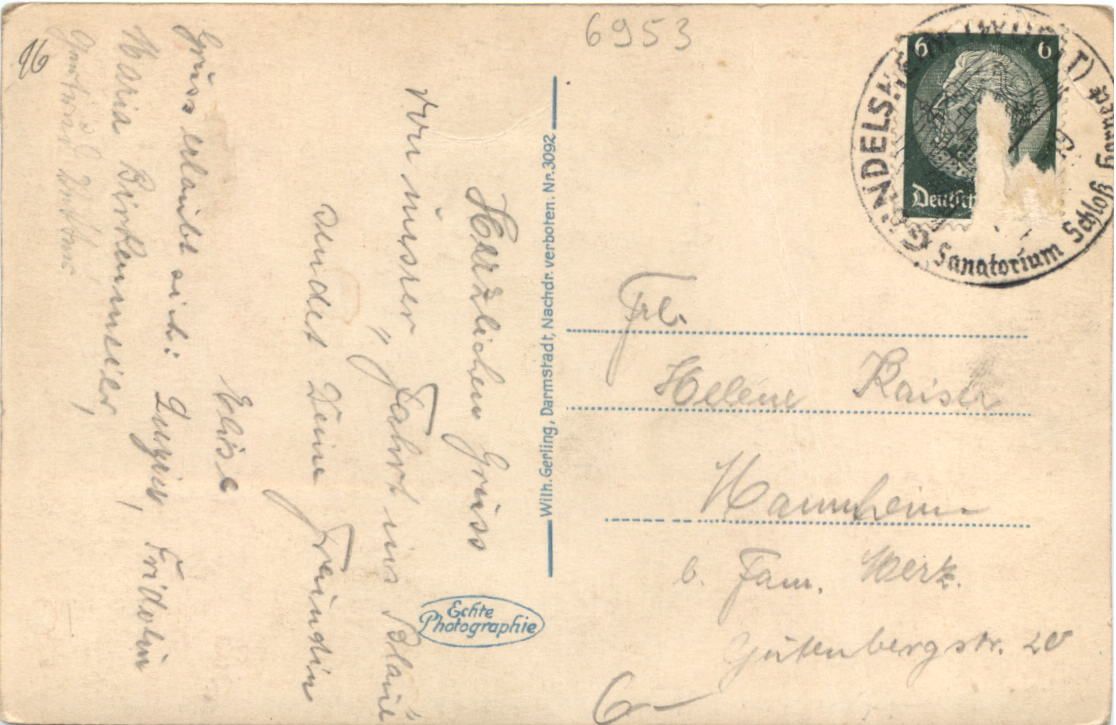 6953
96
Herzlichen Gruss
von unsrer „Fahrt ins Blaue"
sendet Deine Freundin
Elise
Gruss erlaubt sich: Fridolin
Maria Birkenmeier,
Wilh. Gerling, Darmstadt, Nachdr. verboten. Nr. 3092
Echte
Photographie
6 6
Deutsch
Sanatorium Schloß
Frl.
Helene Kaiser
Mannheim
b. Fam. Merk.
Gutenbergstr. 20
6-